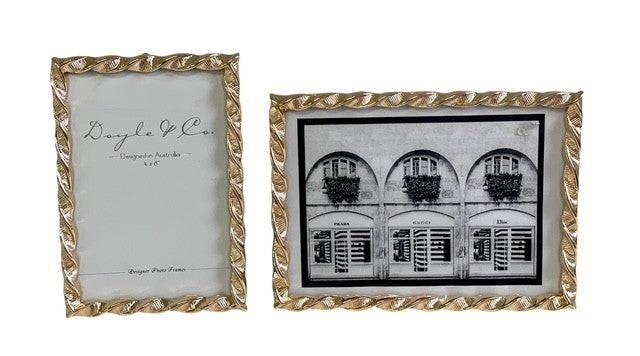 Doyle & Co.
Designed in Australia
4 x 6"
Designer Photo Frames
PRADA GUCCI Dior